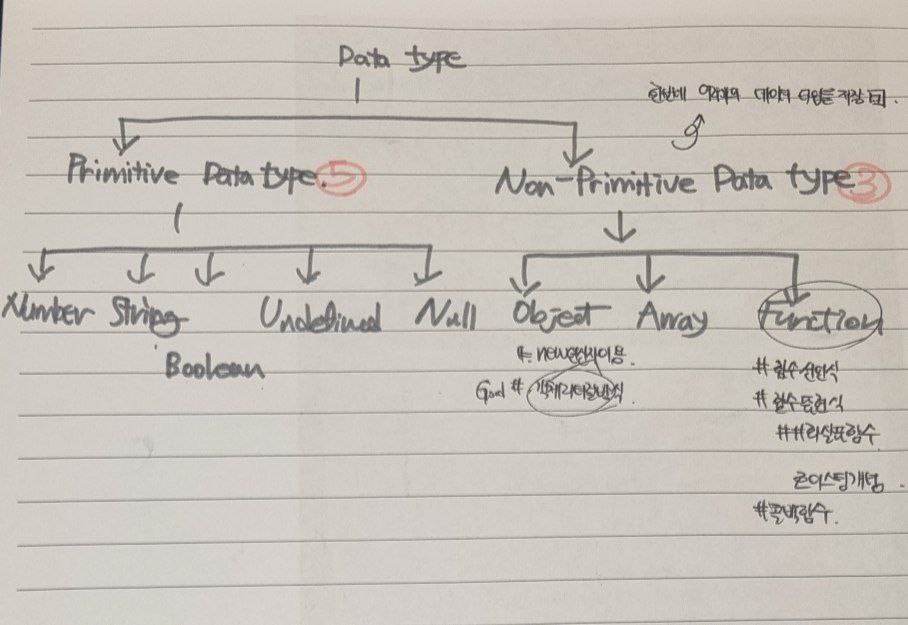 Data type
한번에 여러개의 데이터 타입을 저장
Primitive Data type. 5
Non-Primitive Data type 3
Number String Undefined Null Object Array Function
Boolean
# new연산자이용.
Good # 객체리터럴방식.
# 함수선언식
# 함수표현식
##화살표함수
호이스팅개념.
#콜백함수.